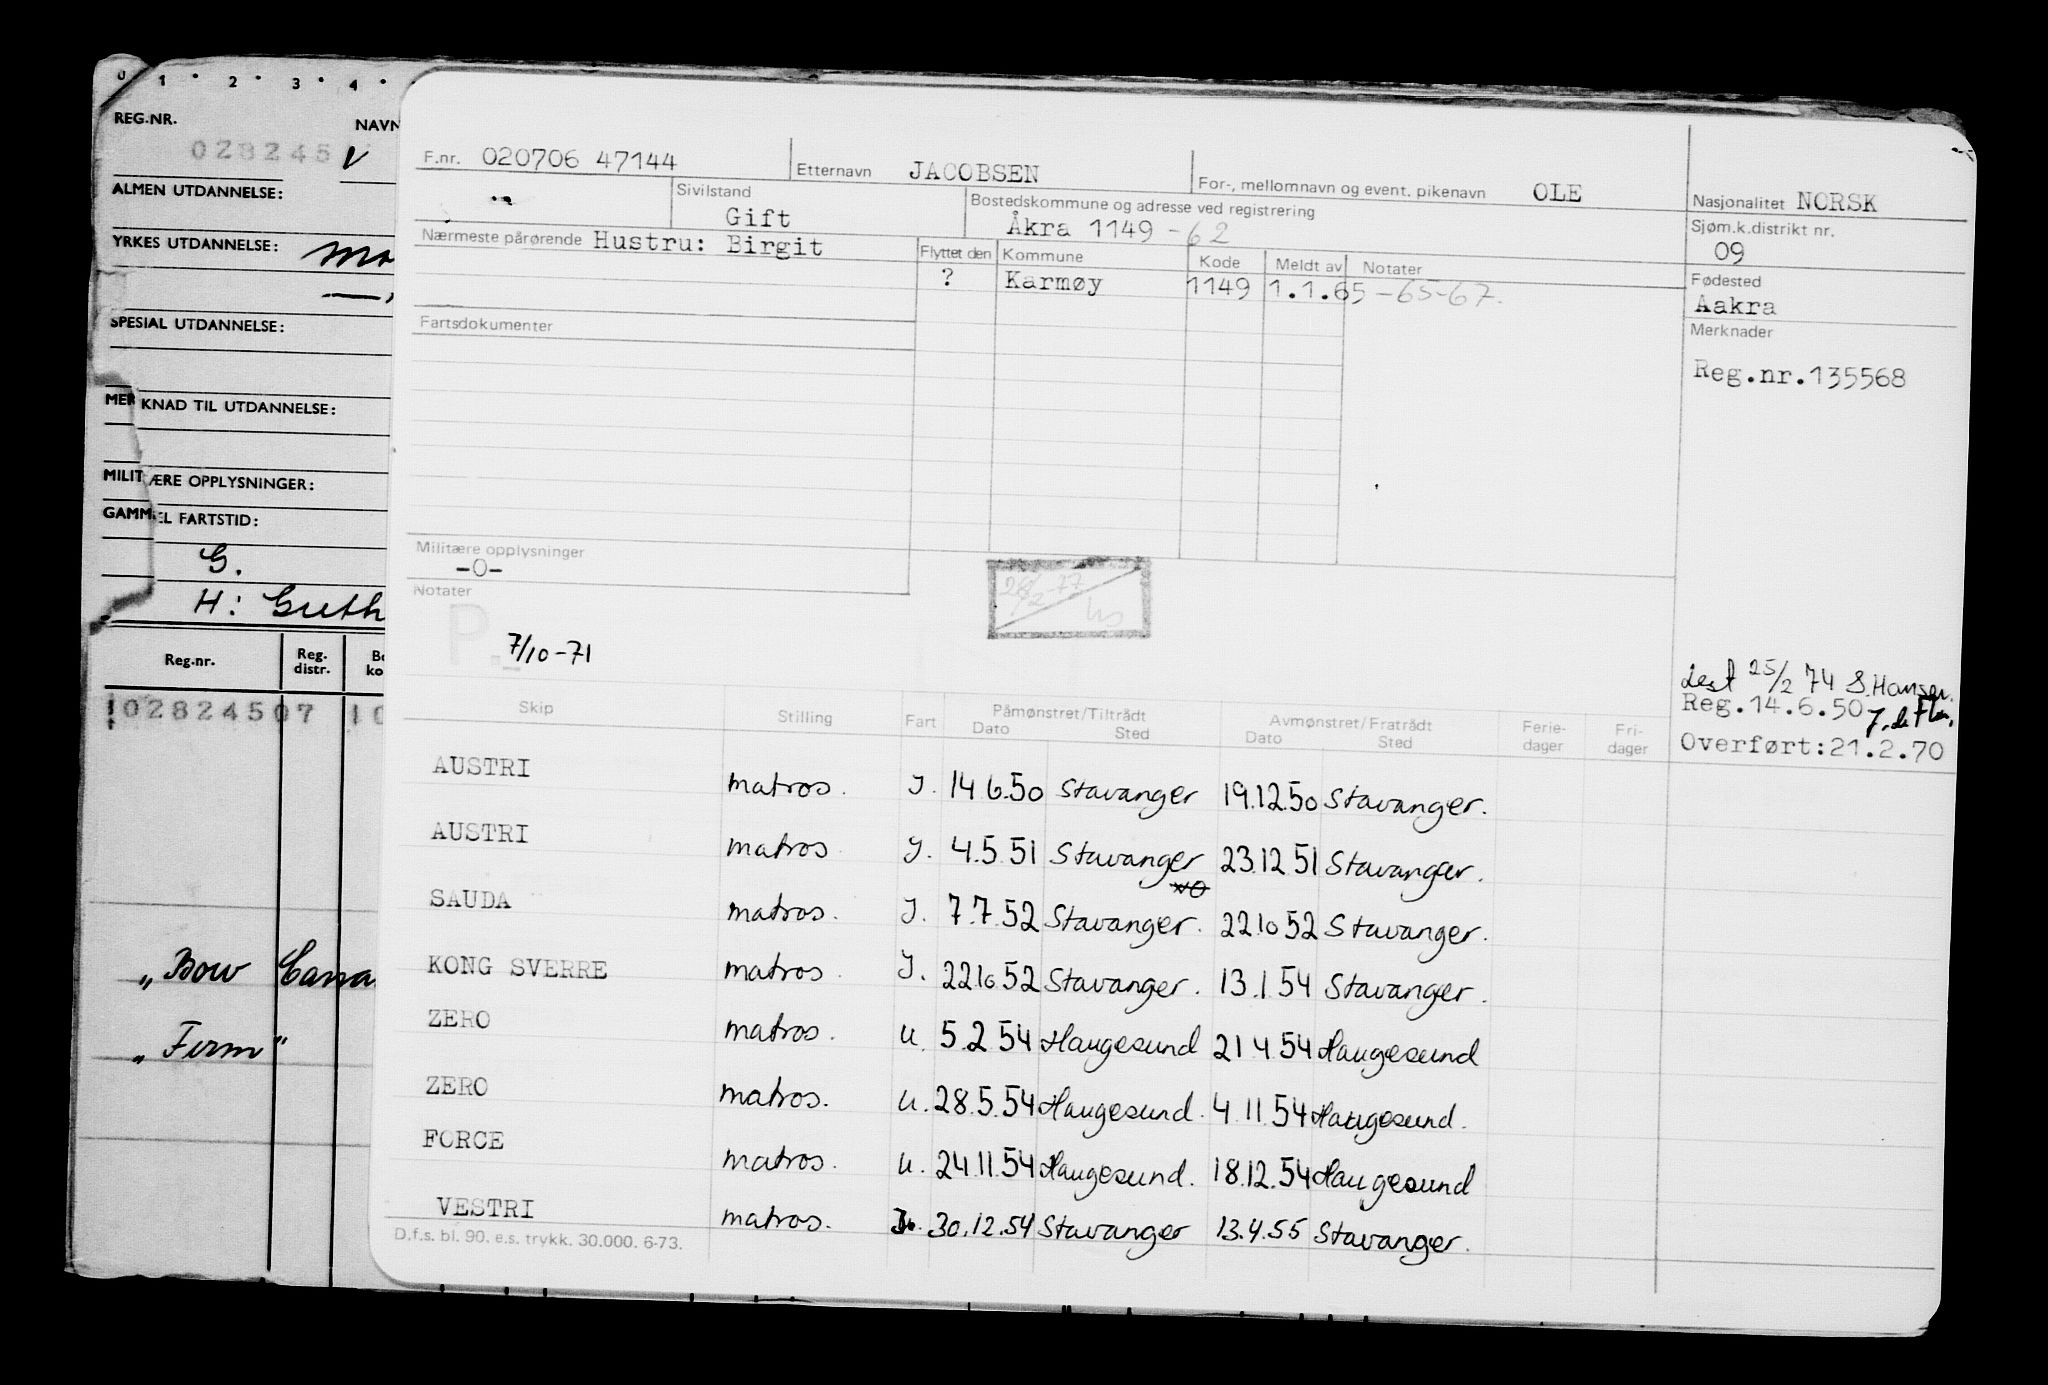 0 1 2 3 4
REG.NR. NAVN
028245 V
ALMEN UTDANNELSE:
YRKES UTDANNELSE:
SPESIAL UTDANNELSE:
MERKNAD TIL UTDANNELSE:
MILITÆRE OPPLYSNINGER:
GAMMEL FARTSTID:
G.
H: Guth
Reg.nr. Reg. distr.
102824507 10
"Bow Cana
"Firm"
F.nr. 020706 47144 Etternavn JACOBSEN For-, mellomnavn og event. pikenavn OLE Nasjonalitet NORSK
Sivilstand Gift Bostedskommune og adresse ved registrering Åkra 1149 -62 Sjøm.k.distrikt nr. 09
Nærmeste pårørende Hustru: Birgit Flyttet den Kommune Kode Meldt av Notater Fødested
? Karmøy 1149 1.1.65 -65-67. Aakra
Fartsdokumenter Merknader
Reg.nr.135568
Militære opplysninger
-0-
Notater
26/2-77
P.
7/10-71
Lest 25/2 74 S. Hansen.
Reg.14.6.50
Overført:21.2.70
Skip Stilling Fart Påmønstret/Tiltrådt Avmønstret/Fratrådt Ferie- Fri-
Dato Sted Dato Sted dager dager
AUSTRI matros. J. 14 6.50 Stavanger 19.12.50 Stavanger.
AUSTRI matros J. 4.5.51 Stavanger 23.12.51 Stavanger.
SAUDA matros. J. 7.7.52 Stavanger. 22.10 52 Stavanger.
KONG SVERRE matros. J. 22.10 52 Stavanger. 13.1.54 Stavanger.
ZERO matros. u. 5.2.54 Haugesund 21.4.54 Haugesund
ZERO matros. u. 28.5.54 Haugesund. 4.11.54 Haugesund.
FORCE matros. u. 24.11.54 Haugesund. 18.12.54 Haugesund
VESTRI matros. 30.12.54 Stavanger 13.4.55 Stavanger.
D.f.s. bl. 90. e.s. trykk. 30.000. 6-73.